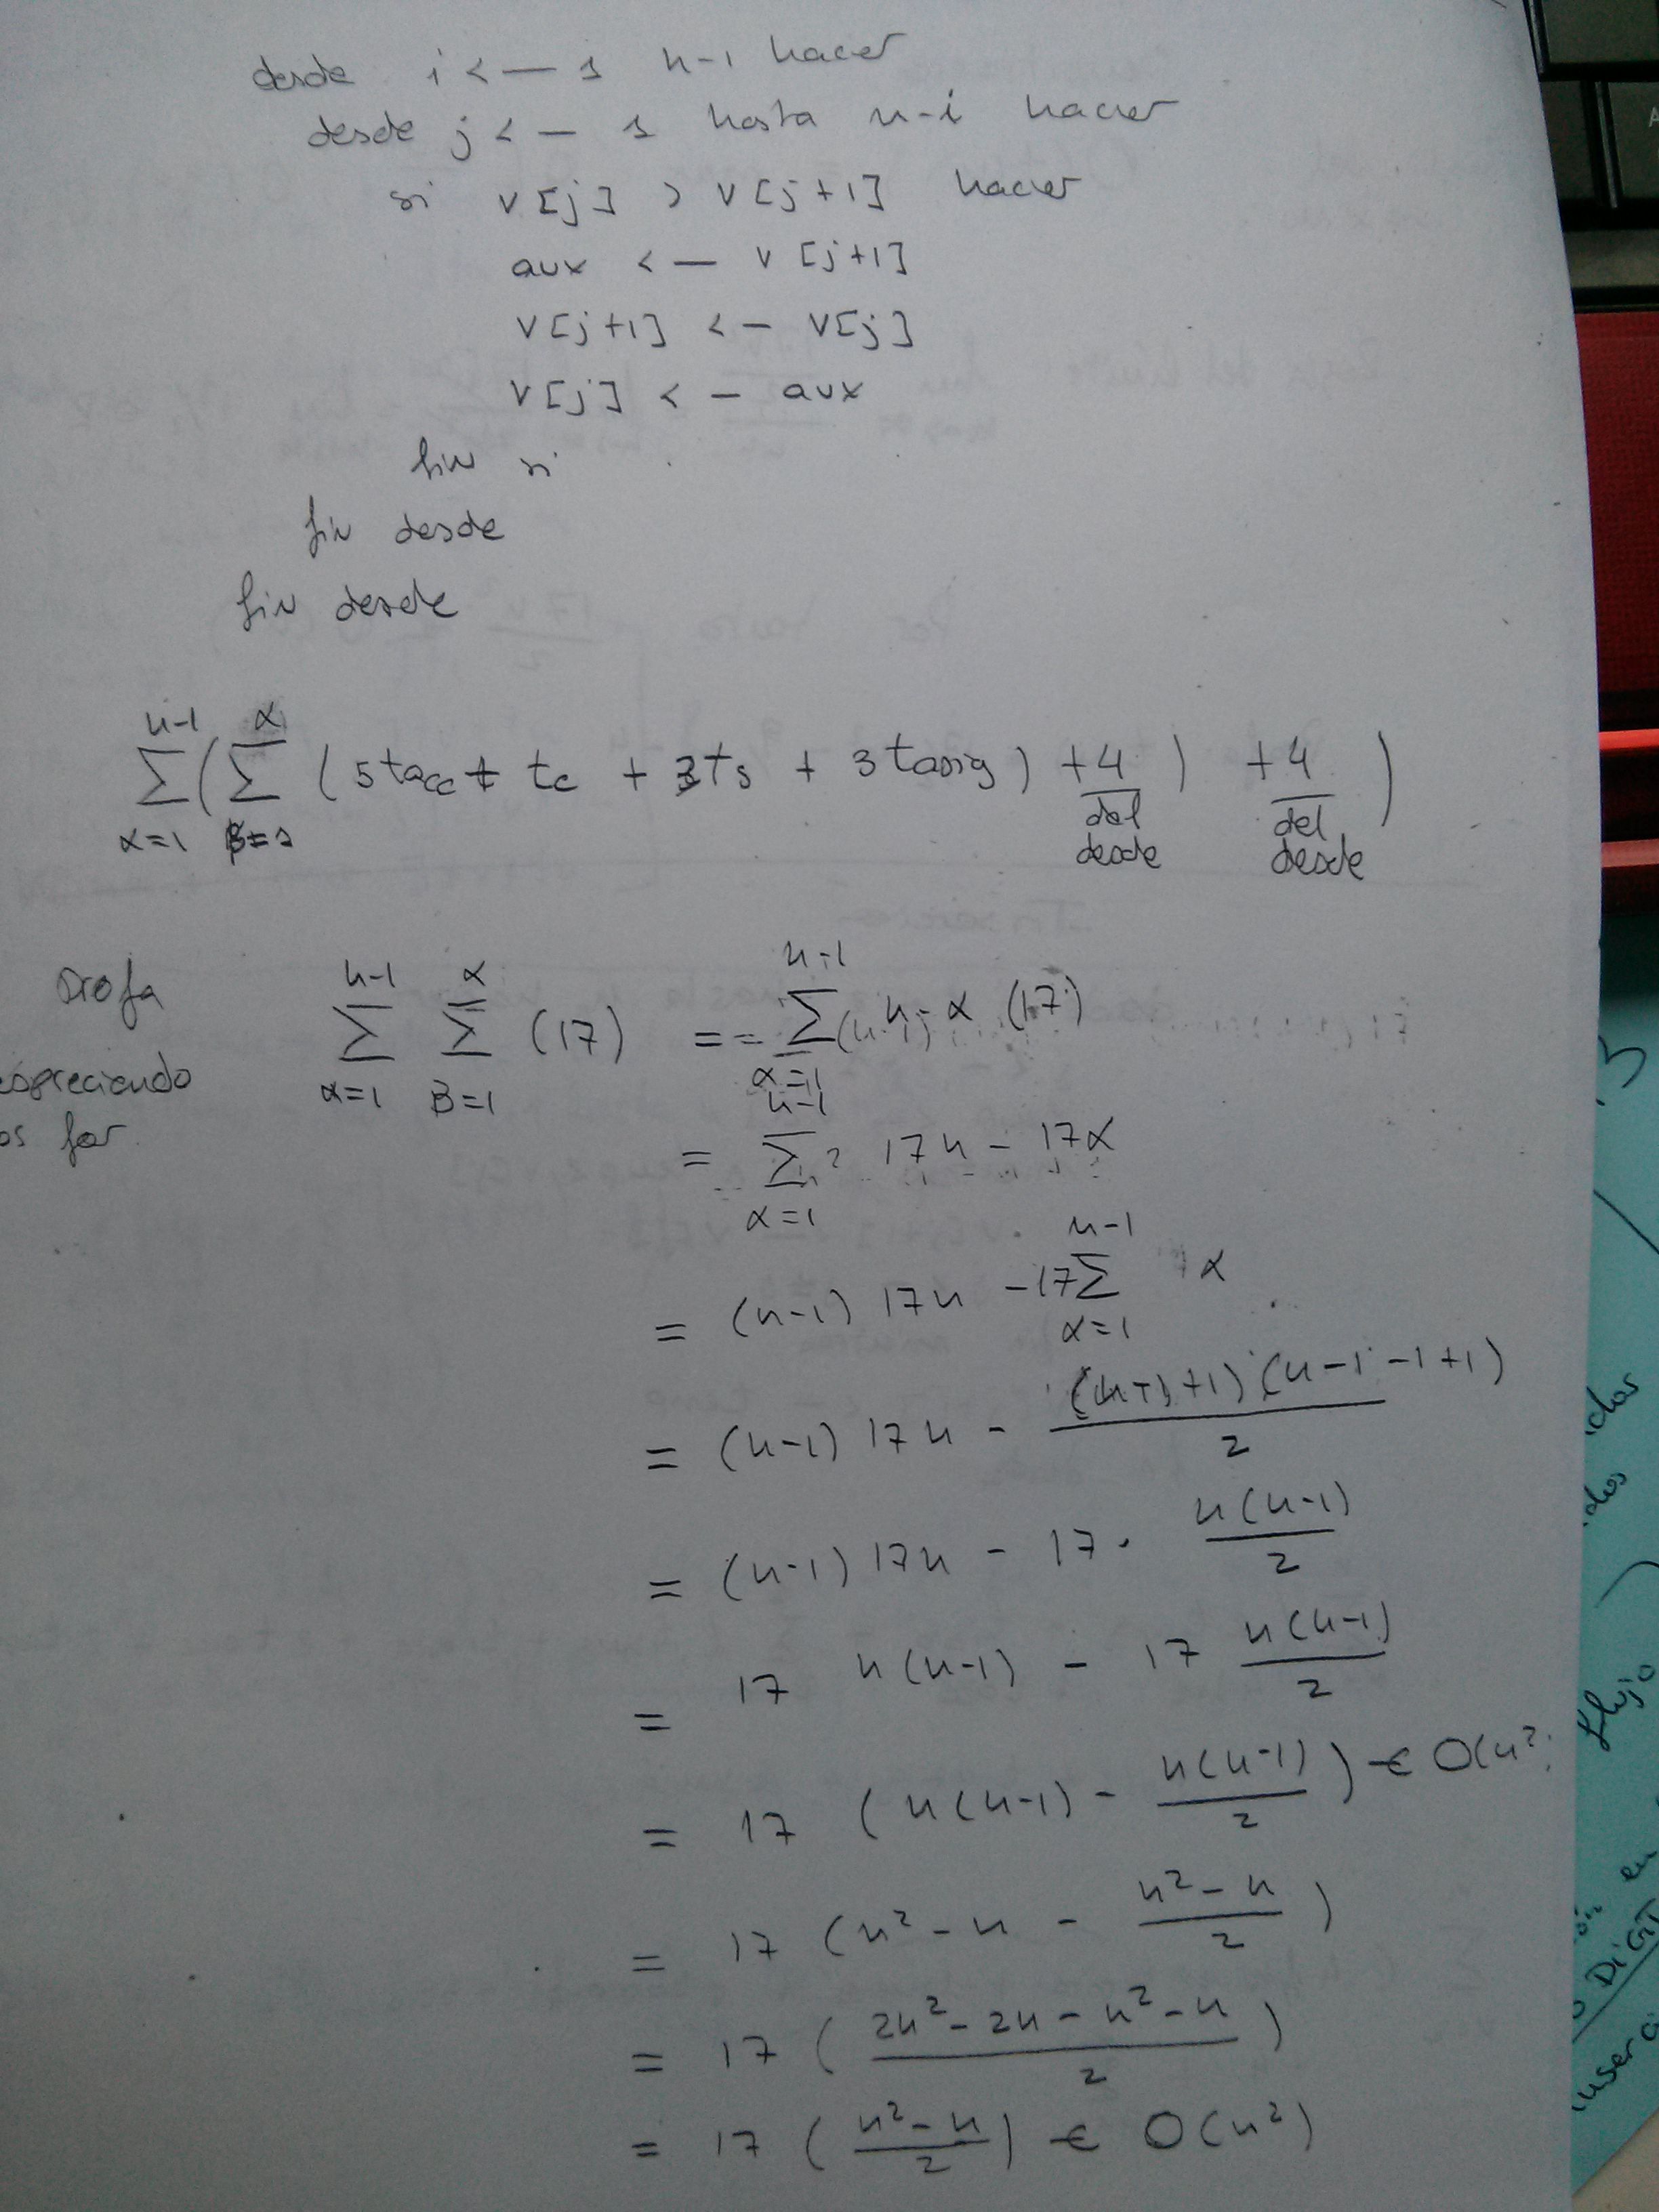 desde i <— 1 n-1 hacer
desde j <— 1 hasta n-i hacer
si v[j] > v[j+1] hacer
aux <— v[j+1]
v[j+1] <- v[j]
v[j] <- aux
fin si
fin desde
fin desde
n-1 α
∑ ( ∑ ( 5 tacc + tc + 3ts + 3 tasig ) +4 ) +4 )
α=1 β=1 del desde del desde
profa
despreciando
os for
n-1 α n-1
∑ ∑ (17) == ∑ n-α (17)
α=1 β=1 α=1
n-1
= ∑ 17n - 17α
α=1
n-1
= (n-1) 17n -17∑ α
α=1
= (n-1) 17n - (n-1+1)(n-1-1+1) / 2
= (n-1) 17n - 17 · n(n-1) / 2
= 17 n(n-1) - 17 n(n-1) / 2
= 17 ( n(n-1) - n(n-1) / 2 ) ∈ O(n²)
= 17 ( n² - n - n² - n / 2 )
= 17 ( 2n² - 2n - n² - n / 2 )
= 17 ( n² - n / 2 ) ∈ O(n²)